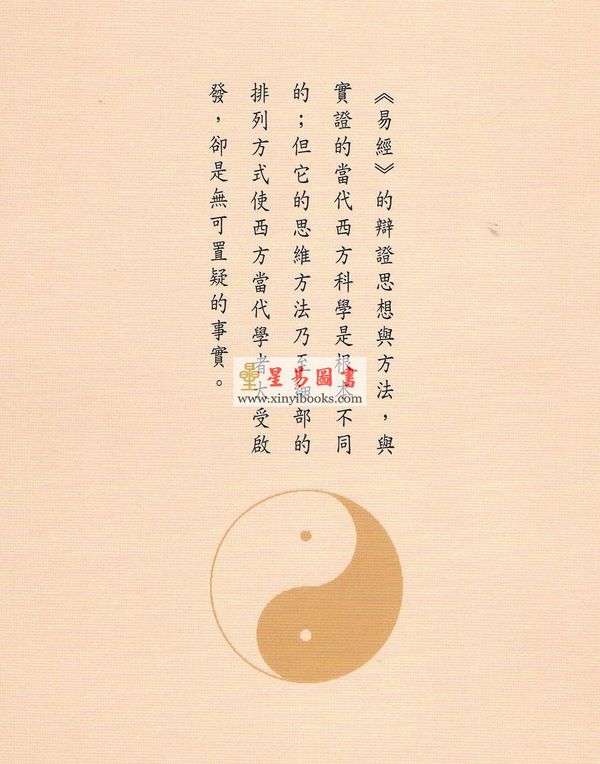 《易經》的辯證思想與方法，與
實證的當代西方科學是根本不同
的；但它的思維方法乃至細部的
排列方式使西方當代學者大受啟
發，卻是無可置疑的事實。
星易圖書
www.xinyibooks.com